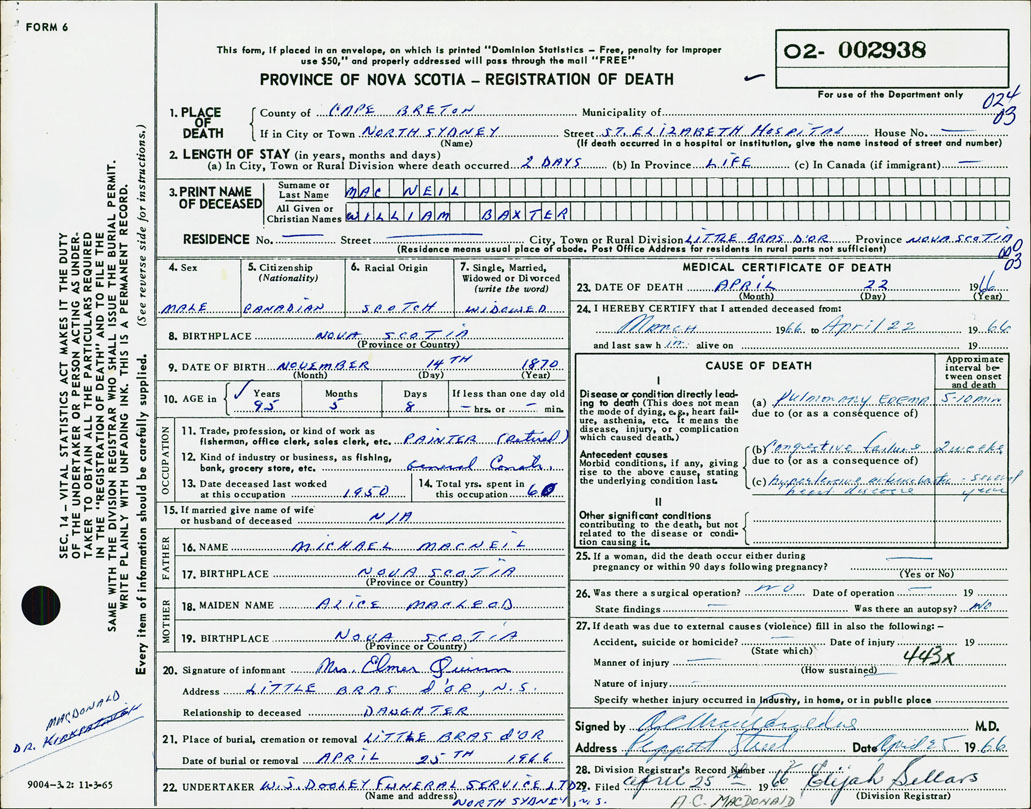 FORM 6
This form, if placed in an envelope, on which is printed "Dominion Statistics – Free, penalty for improper
use $50," and properly addressed will pass through the mail "FREE"
PROVINCE OF NOVA SCOTIA – REGISTRATION OF DEATH
02- 002938
For use of the Department only
024
03
1. PLACE OF DEATH
County of CAPE BRETON Municipality of
If in City or Town NORTH SYDNEY Street ST. ELIZABETH HOSPITAL House No. —
(Name) (If death occurred in a hospital or institution, give the name instead of street and number)
2. LENGTH OF STAY (in years, months and days)
(a) In City, Town or Rural Division where death occurred 2 DAYS (b) In Province LIFE (c) In Canada (if immigrant) —
3. PRINT NAME OF DECEASED
Surname or Last Name MAC NEIL
All Given or Christian Names WILLIAM BAXTER
RESIDENCE No. — Street — City, Town or Rural Division LITTLE BRAS D'OR Province NOVA SCOTIA
(Residence means usual place of abode. Post Office Address for residents in rural parts not sufficient)
03
4. Sex
MALE
5. Citizenship (Nationality)
CANADIAN
6. Racial Origin
SCOTCH
7. Single, Married, Widowed or Divorced (write the word)
WIDOWED
8. BIRTHPLACE NOVA SCOTIA
(Province or Country)
9. DATE OF BIRTH NOVEMBER 14TH 1870
(Month) (Day) (Year)
10. AGE in
Years Months Days If less than one day old
95 5 8 – hrs. or – min.
OCCUPATION
11. Trade, profession, or kind of work as
fisherman, office clerk, sales clerk, etc. PAINTER (Retired)
12. Kind of industry or business, as fishing,
bank, grocery store, etc. General Constr.
13. Date deceased last worked
at this occupation 1950
14. Total yrs. spent in
this occupation 60
15. If married give name of wife
or husband of deceased N/A
FATHER
16. NAME MICHAEL MACNEIL
17. BIRTHPLACE NOVA SCOTIA
(Province or Country)
MOTHER
18. MAIDEN NAME ALICE MACLEOD
19. BIRTHPLACE NOVA SCOTIA
(Province or Country)
20. Signature of informant Mrs. Elmer Quinn
Address LITTLE BRAS d'OR, N.S.
Relationship to deceased DAUGHTER
21. Place of burial, cremation or removal LITTLE BRAS D'OR
Date of burial or removal APRIL 25TH 1966
22. UNDERTAKER W.J. DOOLEY FUNERAL SERVICE LTD
(Name and address) NORTH SYDNEY N.S.
MEDICAL CERTIFICATE OF DEATH
23. DATE OF DEATH APRIL 22 1966
(Month) (Day) (Year)
24. I HEREBY CERTIFY that I attended deceased from:
March 1966. to April 22 1966
and last saw him alive on 19
CAUSE OF DEATH
Approximate interval between onset and death
I
Disease or condition directly leading to death (This does not mean the mode of dying, e.g., heart failure, asthenia, etc. It means the disease, injury, or complication which caused death.)
(a) Pulmonary Edema 5-10 min
due to (or as a consequence of)
Antecedent causes
Morbid conditions, if any, giving rise to the above cause, stating the underlying condition last.
(b) Congestive failure 2 weeks
due to (or as a consequence of)
(c) Hypertensive
heart disease
II
Other significant conditions
contributing to the death, but not related to the disease or condition causing it.
25. If a woman, did the death occur either during
pregnancy or within 90 days following pregnancy? —
(Yes or No)
26. Was there a surgical operation? NO Date of operation – 19
State findings — Was there an autopsy? NO
27. If death was due to external causes (violence) fill in also the following: –
Accident, suicide or homicide? — Date of injury 19
(State which)
Manner of injury — 443X
(How sustained)
Nature of injury —
Specify whether injury occurred in industry, in home, or in public place
Signed by M.D.
Address Peppett Street Date April 25 1966
28. Division Registrar's Record Number
29. Filed April 25th 1966 Elijah Sellars
(Division Registrar)
A.C. MACDONALD
SEC. 14 – VITAL STATISTICS ACT MAKES IT THE DUTY
OF THE UNDERTAKER OR PERSON ACTING AS UNDER-
TAKER TO OBTAIN ALL THE PARTICULARS REQUIRED
IN THE "REGISTRATION OF DEATH" AND TO FILE THE
SAME WITH THE DIVISION REGISTRAR WHO SHALL ISSUE THE BURIAL PERMIT.
WRITE PLAINLY WITH UNFADING INK. THIS IS A PERMANENT RECORD.
Every item of information should be carefully supplied. (See reverse side for instructions.)
MACDONALD
DR. KIRKPATRICK
9004-3.2: 11-3-65